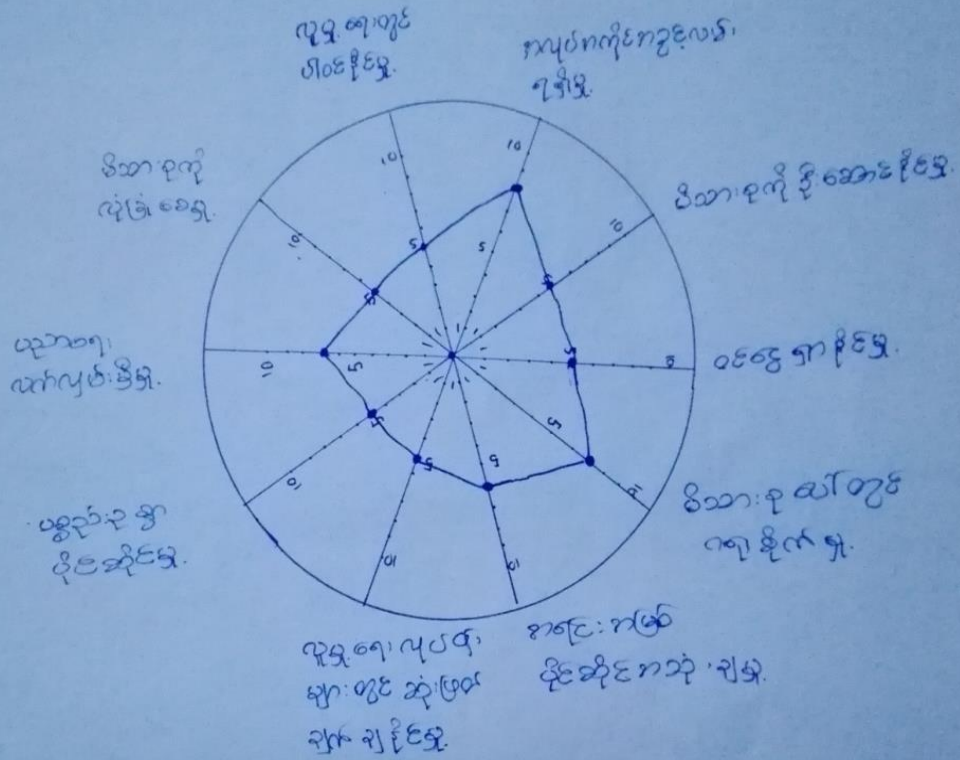 လူမှုရေးတွင်
ပါဝင်နိုင်မှု.
အလုပ်အကိုင်အခွင့်လမ်း
ရရှိမှု.
မိသားစုကို ဦးဆောင်နိုင်မှု.
ဝင်ငွေရှာနိုင်မှု.
မိသားစုပေါ်တွင်
ဂရုစိုက်မှု.
အရင်းအမြစ်
ပိုင်ဆိုင်အသုံးချမှု.
လူမှုရေးလုပ်ငန်း
များတွင် ဆုံးဖြတ်
ချက်ချနိုင်မှု.
ပစ္စည်းဥစ္စာ
ပိုင်ဆိုင်မှု.
ပညာရေး
လက်လှမ်းမှီမှု.
မိသားစုကို
လုံခြုံစေမှု.
10
5
10
5
10
5
5
10
5
10
5
10
5
10
5
10
5
10
5